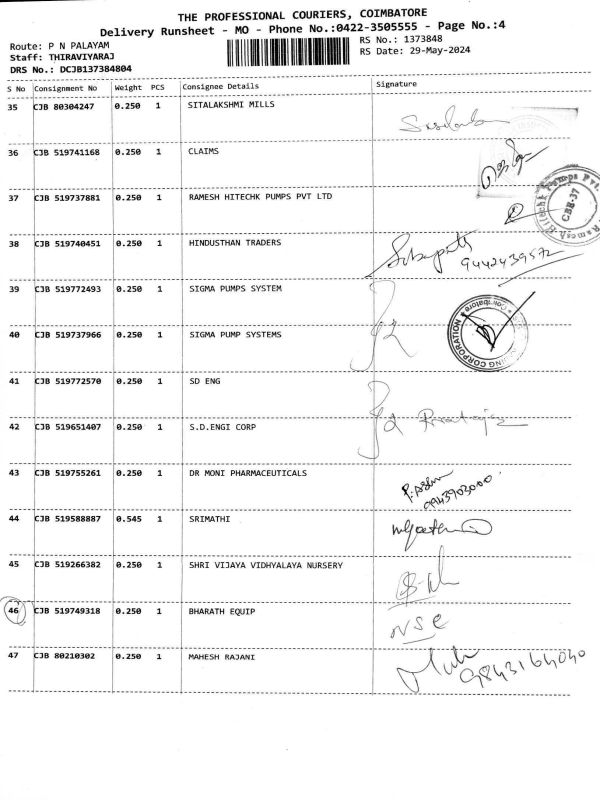 THE PROFESSIONAL COURIERS, COIMBATORE
Delivery Runsheet - MO - Phone No.:0422-3505555 - Page No.:4
Route: P N PALAYAM
RS No.: 1373848
Staff: THIRAVIYARAJ
RS Date: 29-May-2024
DRS No.: DCJB137384804
S No Consignment No Weight PCS Consignee Details Signature
35 CJB 80304247 0.250 1 SITALAKSHMI MILLS
36 CJB 519741168 0.250 1 CLAIMS
37 CJB 519737881 0.250 1 RAMESH HITECHK PUMPS PVT LTD
CBE-37
38 CJB 519740451 0.250 1 HINDUSTHAN TRADERS
9442439572
39 CJB 519772493 0.250 1 SIGMA PUMPS SYSTEM
40 CJB 519737966 0.250 1 SIGMA PUMP SYSTEMS
41 CJB 519772570 0.250 1 SD ENG
42 CJB 519651407 0.250 1 S.D.ENGI CORP
43 CJB 519755261 0.250 1 DR MONI PHARMACEUTICALS
9943903000
44 CJB 519588887 0.545 1 SRIMATHI
45 CJB 519266382 0.250 1 SHRI VIJAYA VIDHYALAYA NURSERY
46 CJB 519749318 0.250 1 BHARATH EQUIP
NSC
47 CJB 80210302 0.250 1 MAHESH RAJANI
9843164040